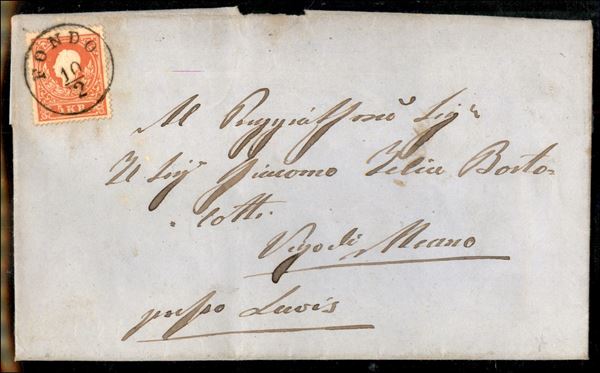 FONDO
10/2
5 KR
Al Preggiatissmo Sigr
Il Sigr Giacomo Felice Borto-
lotti
Vigo di Meano
presso Lavis